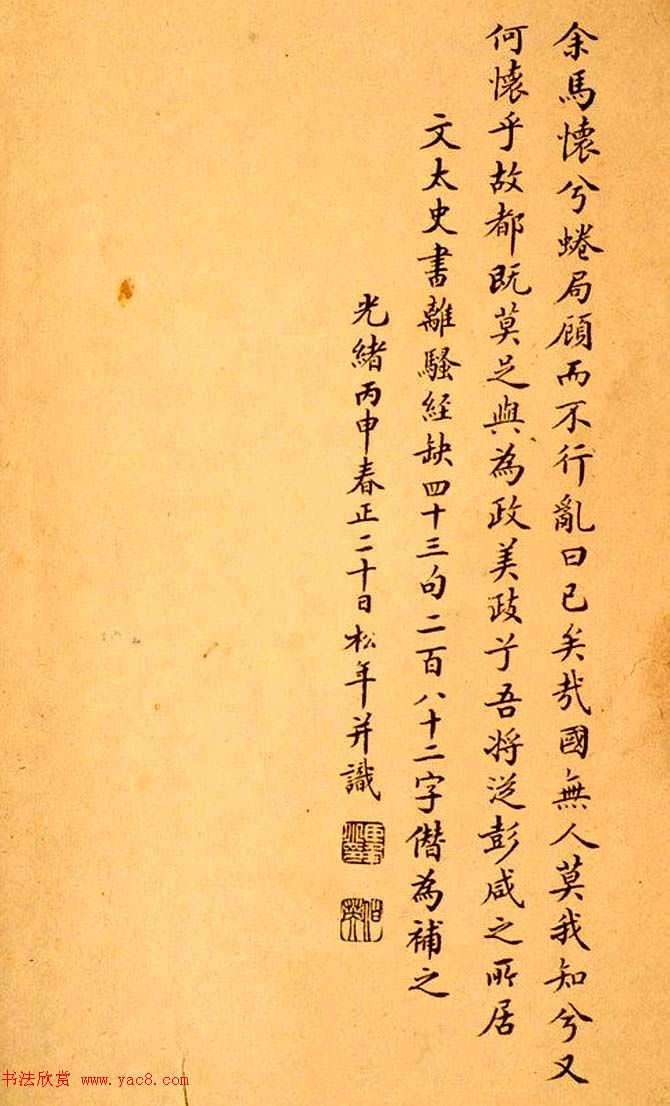 余馬懷兮蜷局顧而不行亂曰已矣哉國無人莫我知兮又
何懷乎故都既莫足與為政美政兮吾將從彭咸之所居
文太史書離騷經缺四十三句二百八十二字僭為補之
光緒丙申春正二十日松年并識
书法欣赏 www.yac8.com